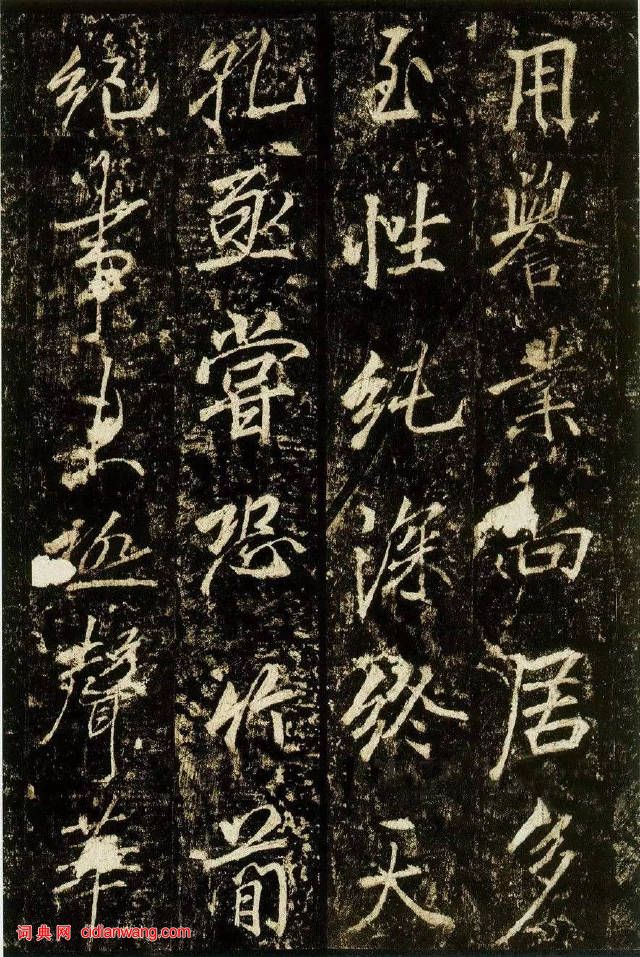 用譽業尚居多
至性純深終天
孔亟嘗恐竹簡
紀事未極聲華
词典网 cidianwang.com